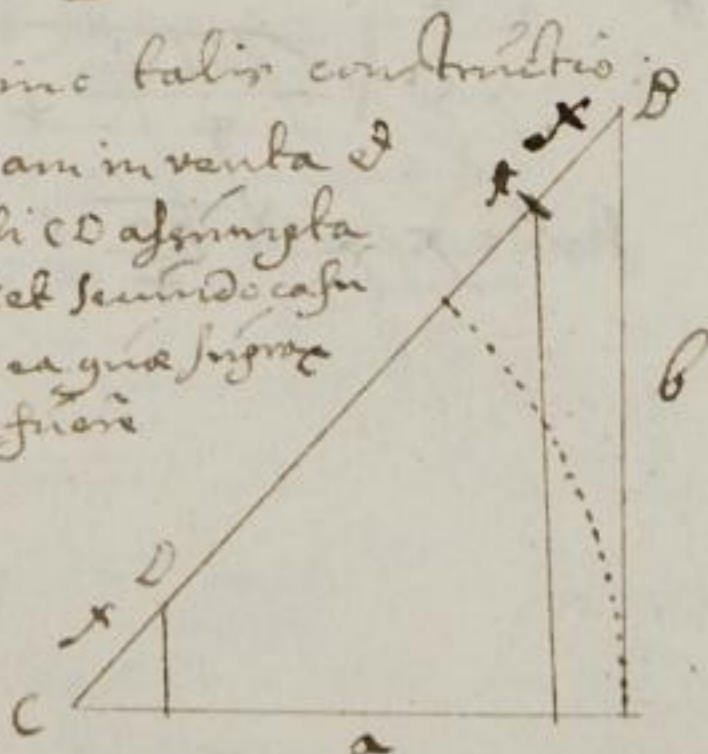 inc talis constructio
B
x
am inventa et
A
li CD assumpta
et secundo casu
b
ea quæ supra
fuere
D
x
C
a